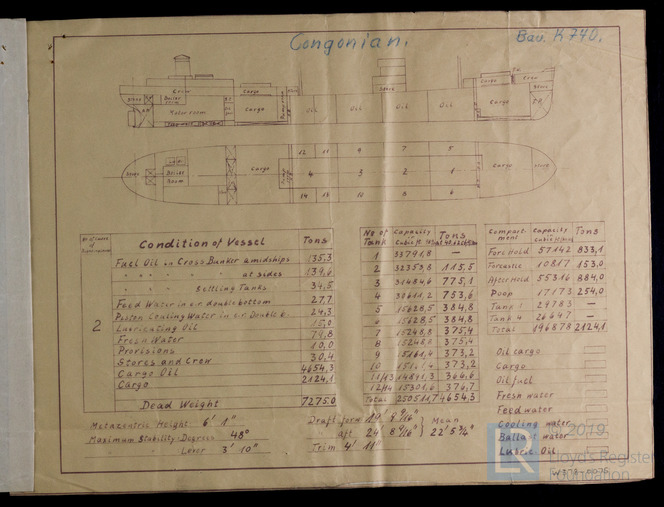 Congonian.
Bau. K740.
Crew
Cargo
Store
Boiler room
Motor room
Cargo
Oil Oil Oil Oil
Cargo
Crew
Store
Cargo
12 11 9 7 5
4 3 2 1
14 13 10 8 6
Cargo
Boiler Room
Cargo
Condition of Vessel Tons
Fuel Oil in Cross Bunker amidships 135,3
" " " " at sides 139,6
" " Settling Tanks 34,5
Feed Water in e.r. double bottom 27,7
Piston Cooling Water in e.r. Double b. 24,3
Lubricating Oil 15,0
Fresh Water 79,8
Provisions 10,0
Stores and Crew 30,4
Cargo Oil 4654,3
Cargo 2124,1
2
Dead Weight 7275,0
No of Tank Capacity Tons
1 33791,8 —
2 32353,8 115,5
3 31484,6 775,1
4 30611,2 753,6
5 15628,5 384,8
6 15628,5 384,8
7 15248,8 375,4
8 15248,8 375,4
9 15161,4 373,2
10 373,2
11/13 366,6
12/14 15301,6 376,7
Total 250511,7 4654,3
Compartment Capacity Tons
Fore Hold 57142 833,1
Forecastle 10817 153,0
After Hold 55316 884,0
Poop 17173 254,0
Tank 1 29783 —
Tank 4 26647 —
Total 196878 2124,1
Oil cargo
Cargo
Oil fuel
Fresh water
Feed water
Cooling water
Ballast water
Lubric. Oil
Metacentric Height 6' 1"
Maximum Stability: Degrees 48°
Lever 3' 10"
Draft forw. 8 9/16"
aft 24' 8 9/16"
Mean 22' 5 3/4"
Trim 4' 11"
2019
LR
Lloyd's Register
Foundation